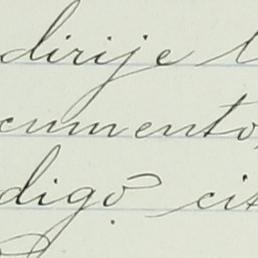 dirije l
cumento,
digo cit